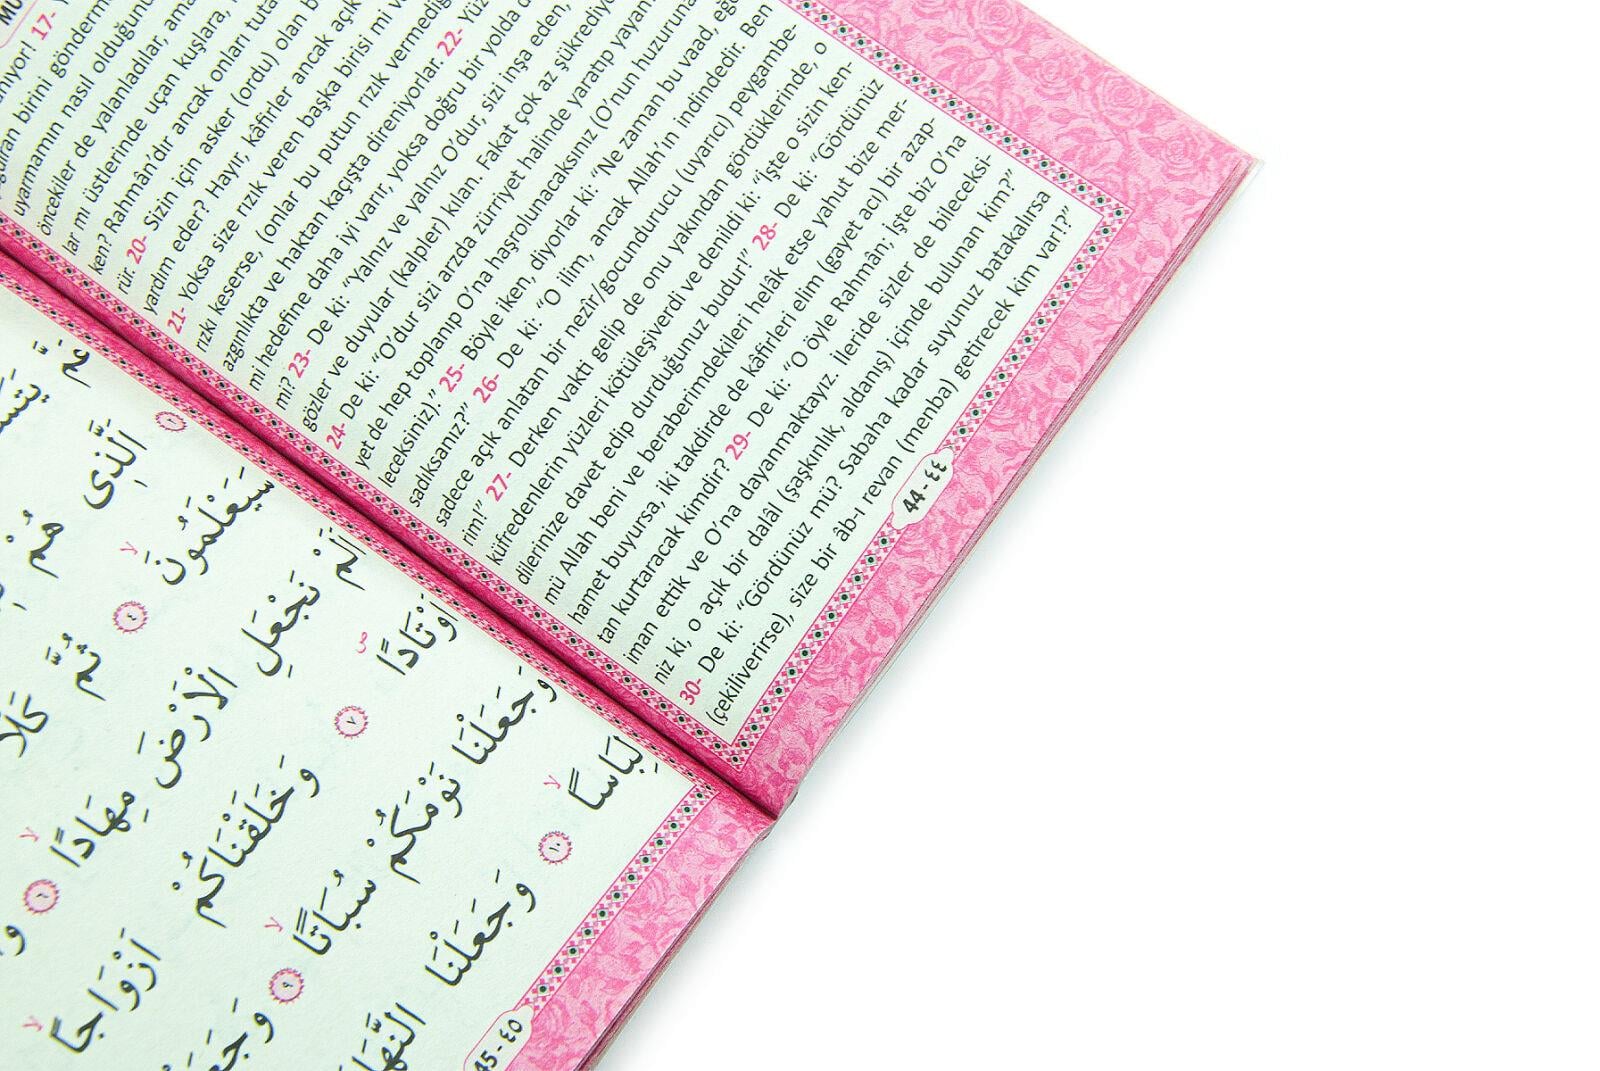 MÜ
nıyor! 17-
ğdıran birini gönderm
uyarmamın nasıl olduğunu
öncekiler de yalanladılar, ama
lar mı üstlerinde uçan kuşlara,
ken? Rahmân'dır ancak onları tuta
rür. 20- Sizin için asker (ordu) olan b
yardım eder? Hayır, kâfirler ancak açık
21- Yoksa size rızık veren başka birisi mi v
rızkı keserse, (onlar bu putun rızık vermediğ
azgınlıkta ve haktan kaçışta direniyorlar. 22- Yüz
mi hedefine daha iyi varır, yoksa doğru bir yolda d
mi? 23- De ki: “Yalnız ve yalnız O'dur, sizi inşa eden,
gözler ve duyular (kalpler) kılan. Fakat çok az şükrediyo
24- De ki: “O'dur sizi arzda zürriyet halinde yaratıp yayan
yet de hep toplanıp O'na haşrolunacaksınız (O'nun huzuruna
leceksiniz).” 25- Böyle iken, diyorlar ki: “Ne zaman bu vaad, eğe
sadıksanız?” 26- De ki: “O ilim, ancak Allah'ın indindedir. Ben
sadece açık anlatan bir nezîr/gocundurucu (uyarıcı) peygambe-
rim!” 27- Derken vakti gelip de onu yakından gördüklerinde, o
küfredenlerin yüzleri kötüleşiverdi ve denildi ki: “İşte o sizin ken-
dilerinize davet edip durduğunuz budur!” 28- De ki: “Gördünüz
mü Allah beni ve beraberimdekileri helâk etse yahut bize mer-
hamet buyursa, iki takdirde de kâfirleri elim (gayet acı) bir azap-
tan kurtaracak kimdir? 29- De ki: “O öyle Rahmân; İşte biz O'na
iman ettik ve O'na dayanmaktayız. İleride sizler de bileceksi-
niz ki, o açık bir dalâl (şaşkınlık, aldanış) içinde bulunan kim?”
30- De ki: “Gördünüz mü? Sabaha kadar suyunuz batakalırsa
(çekiliverirse), size bir âb-ı revan (menba) getirecek kim var!?”
44 - ٤٤
عَمَّ يَتَسَ
اَلَّذٖى هُمْ
سَيَعْلَمُونَ ٤ ثُمَّ كَلَّا
اَلَمْ نَجْعَلِ الْاَرْضَ مِهَادًا ٦
اَوْتَادًا ٧ وَخَلَقْنَاكُمْ اَزْوَاجًا
وَجَعَلْنَا نَوْمَكُمْ سُبَاتًا ٩ وَجَعَ
لِبَاسًا ١٠ وَجَعَلْنَا النَّهَا
45 - ٤٥